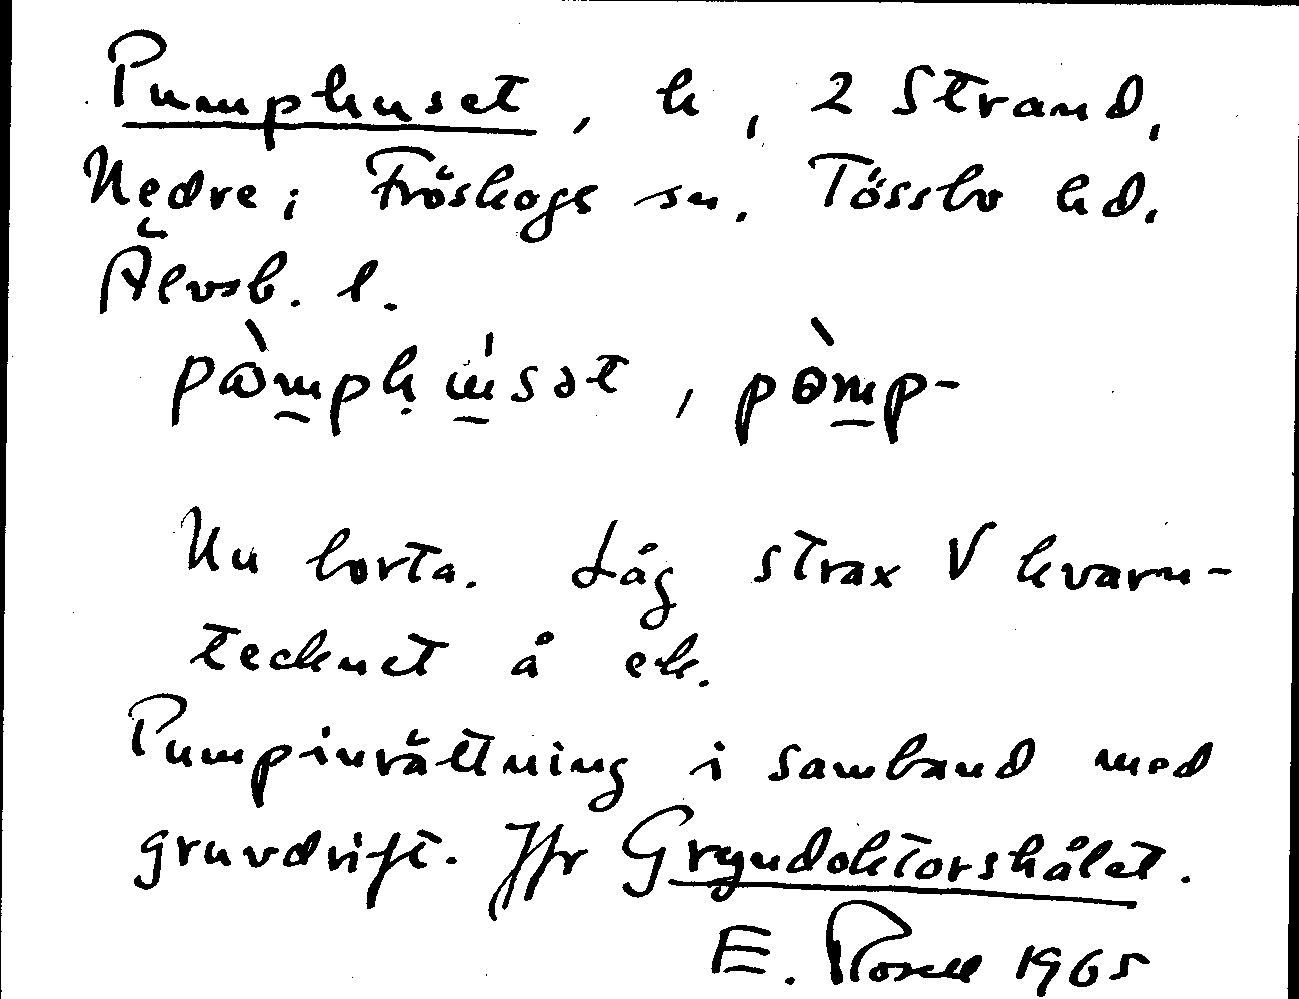 Pumphuset, h, 2 Strand,
Nedre; Fröskogs sn. Tössbo hd.
Älvsb. l.
pòmpḥ u̇́sət, pòmp-
Nu borta. Låg strax V kvarn-
tecknet å ek.
Pumpinrättning i samband med
gruvdrift. Jfr Gryndoktorshålet.
E. Rosell 1965